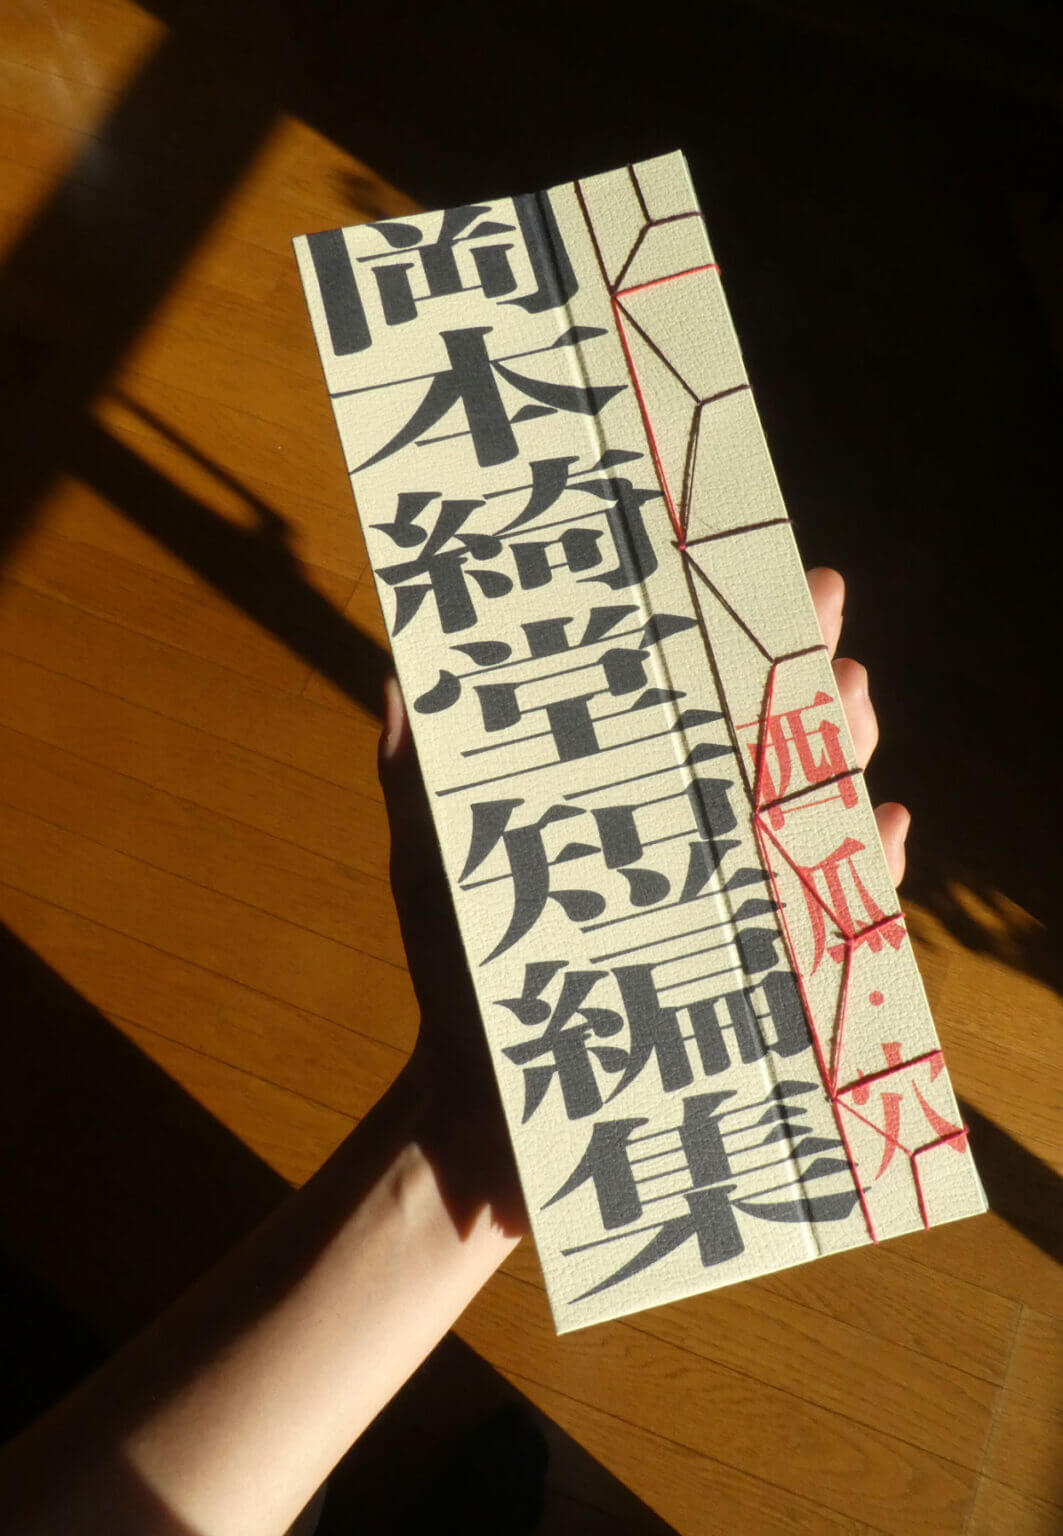 岡本綺堂短編集
西瓜・穴